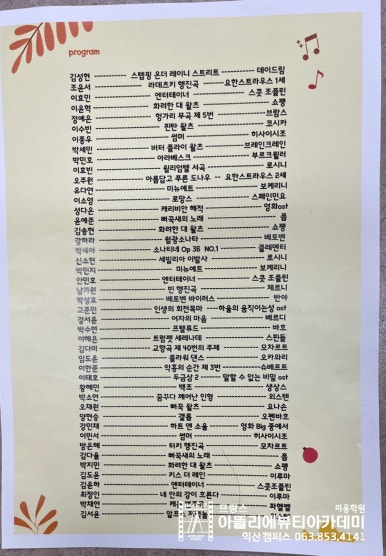 program
김성현 ---------- 스텝핑 온더 레이니 스트리트 -------- 데이드림
조윤서 ---------- 라데츠키 행진곡 -------- 요한스트라우스 1세
이효민 ---------- 엔터테이너 ---------- 스콧 조플린
이윤혁 ---------- 화려한 대 왈츠 ---------- 쇼팽
정예은 ---------- 헝가리 무곡 제 5번 ---------- 브람스
이수빈 ---------- 핀란 왈츠 ---------- 코시카
이종우 ---------- 썸머 ---------- 히사이시조
박세민 ---------- 버터 플라이 왈츠 ---------- 브레인크레인
박민호 ---------- 아라베스크 ---------- 부르크뮐러
이호빈 ---------- 윌리엄텔 서곡 ---------- 로시니
오주원 ---------- 아름답고 푸른 도나우 -- 요한스트라우스 2세
유다연 ---------- 미뉴에트 ---------- 보케리니
이소영 ---------- 로망스 ---------- 스페인민요
성다온 ---------- 캐리비안 해적 ---------- 영화ost
윤예준 ---------- 뻐꾹새의 노래 ---------- 폴
김승현 ---------- 화려한 대 왈츠 ---------- 쇼팽
강하라 ---------- 월광소나타 ---------- 베토벤
박세아 ---------- 소나티네 Op 36 NO.1 ---------- 클레멘티
신소현 ---------- 세빌리아 이발사 ---------- 로시니
박민지 ---------- 미뉴에트 ---------- 보케리니
안민호 ---------- 엔터테이너 ---------- 스콧 조플린
남가원 ---------- 빈 행진곡 ---------- 체르니
박성호 ---------- 베토벤 바이러스 ---------- 반야
고은민 ---------- 인생의 회전목마 ---- 하울의 움직이는성 ost
강서윤 ---------- 여자의 마음 ---------- 베르디
박수연 ---------- 프렐류드 ---------- 바흐
이해은 ---------- 트럼펫 세레나데 ---------- 스핀들
김다미 ---------- 교향곡 제 40번의 주제 ---------- 모차르트
임도윤 ---------- 플라워 댄스 ---------- 오카와리
이한준 ---------- 악흥의 순간 제 3번 ---------- 슈베르트
이태호 ---------- 두금삼 2 ---- 말할 수 없는 비밀 ost
황혜민 ---------- 백조 ---------- 생상스
박소언 ---------- 꿈꾸다 깨어난 인형 ---------- 외스텐
오재원 ---------- 뻐꾹 왈츠 ---------- 요나손
양현승 ---------- 갤롭 ---------- 오펜바흐
강민재 ---------- 하트 앤 소울 ---------- 영화 Big 중에서
이민서 ---------- 썸머 ---------- 히사이시조
방혜준 ---------- 터키 행진곡 ---------- 모차르트
김다율 ---------- 뻐꾹새의 노래 ---------- 폴
박지민 ---------- 화려한 대 왈츠 ---------- 쇼팽
김도윤 ---------- 키스 더 레인 ---------- 이루마
김윤하 ---------- 엔터테이너 ---------- 스콧조플린
최정인 ---------- 네 안의 강이 흐른다 ---------- 이루마
박재인 ---------- 파헬벨
김서윤
프랑스 미용학원
아뜰리에뷰티아카데미
익산캠퍼스 063.853.4141